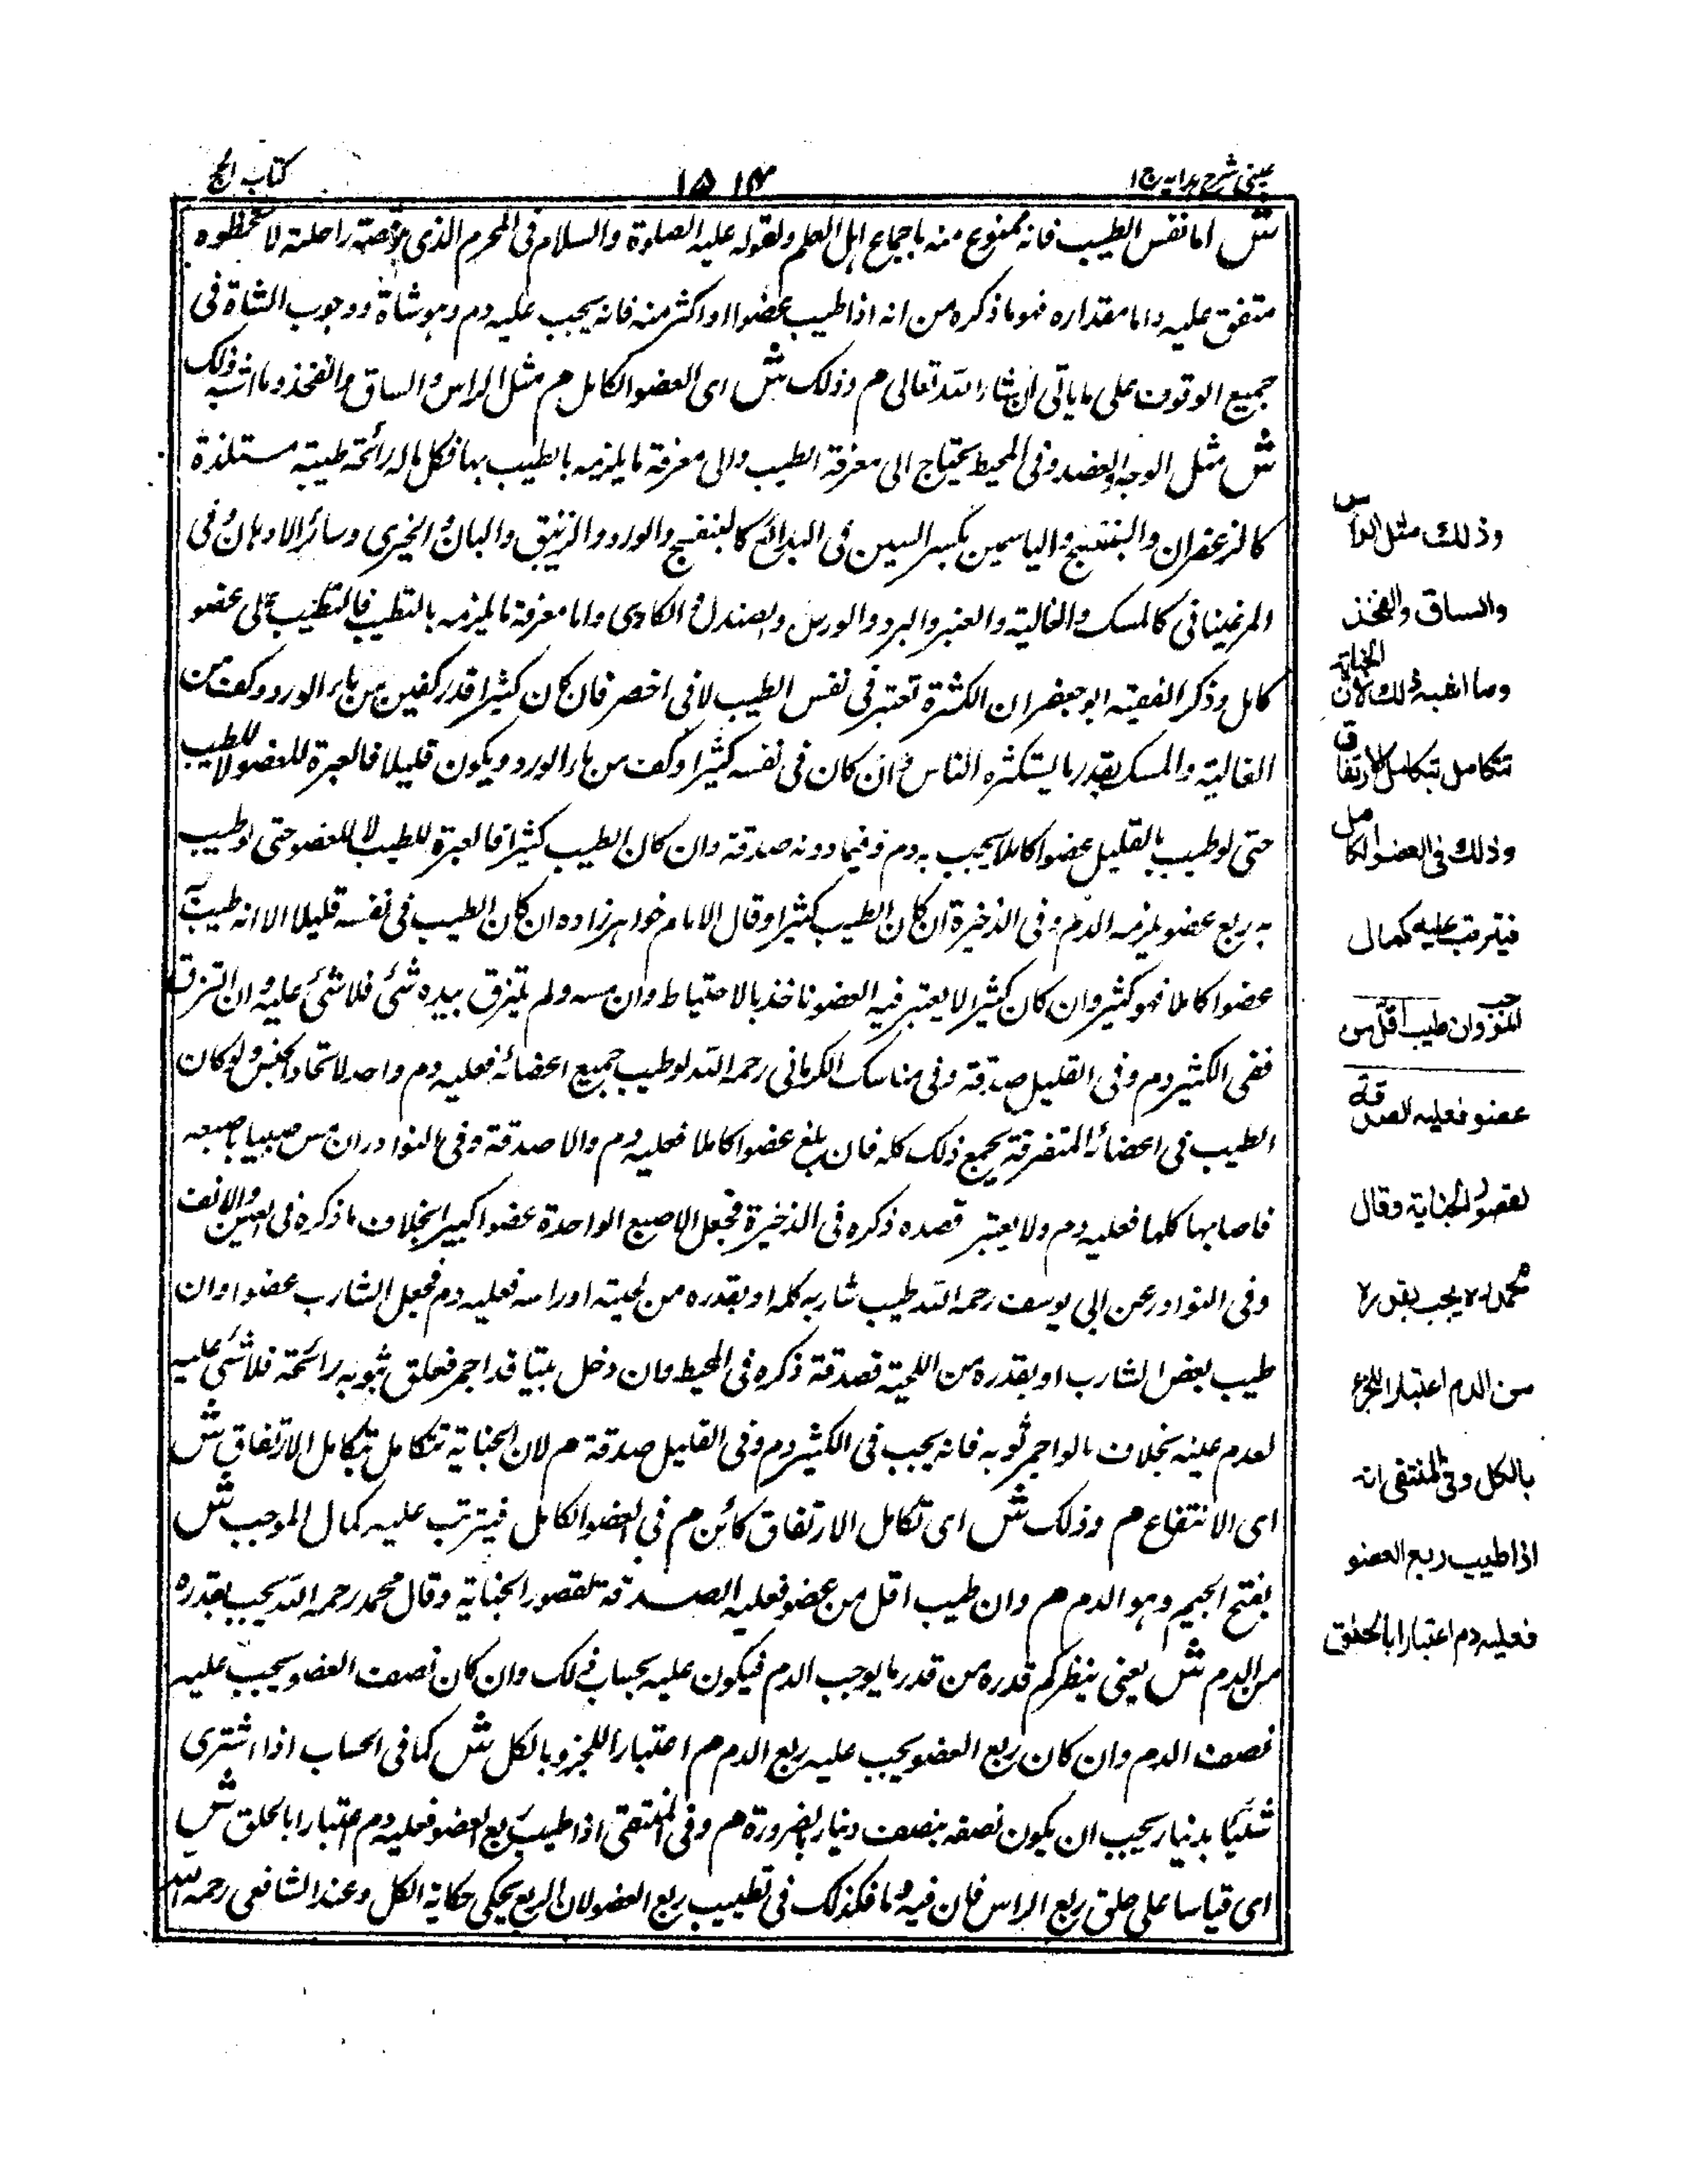 عینی شرح ہدایہ ج۱
۱۵۱۴
کتاب الحج
ش اما نفس الطیب فانہ ممنوع منہ باجماع اہل العلم ولقولہ علیہ الصلوۃ والسلام فی المحرم الذی وقصتہ راحلتہ لا تحنطوہ
متفق علیہ واما مقدارہ فہو ما ذکرہ من انہ اذا طیب عضوا او اکثر منہ فانہ یجب علیہ دم وہو شاۃ ووجوب الشاۃ فی
جمیع الوقوف علی ما یاتی ان شاء اللہ تعالی م وذلک ش ای العضو الکامل م مثل الراس والساق والفخذ وما اشبہ ذلک
ش مثل الوجہ والعضد وفی المحیط یحتاج الی معرفۃ الطیب والی معرفۃ ما یلزمہ بالطیب بہا فکل مالہ رائحۃ طیبۃ مستلذۃ
کالزعفران والبنفسج والیاسمین بکسر السین فی البدائع کالبنفسج والورد والزنبق والبان والخیری وسائر الادہان وفی
المرغینانی کالمسک والغالیۃ والعنبر والبرد والورس والصندل والکادی واما معرفۃ ما یلزمہ بالتطیب فالتطیب علی عضو
کامل وذکر الفقیہ ابو جعفر ان الکثرۃ تعتبر فی نفس الطیب لا فی اخصر فان کان کثیرا قدر کفین من ماء الورد وکف من
الغالیۃ والمسک بقدر ما یستکثرہ الناس وان کان فی نفسہ کثیرا وکف من ماء الورد ویکون قلیلا فالعبرۃ للعضو لا للطیب
حتی لو طیب بالقلیل عضوا کاملا یجب بہ دم وفیما دونہ صدقۃ وان کان الطیب کثیرا فالعبرۃ للطیب لا للعضو حتی لو طیب
بہ ربع عضو یلزمہ الدم وفی الذخیرۃ ان کان الطیب کثیرا وقال الامام خواہرزادہ ان کان الطیب فی نفسہ قلیلا الا انہ طیب بہ
عضوا کاملا فہو کثیر وان کان کثیرا لا یعتبر فیہ العضو ناخذ بالاحتیاط وان مسہ ولم یلتزق بیدہ شئ فلا شئ علیہ وان التزق
ففی الکثیر دم وفی القلیل صدقۃ وفی مناسک الکرمانی رحمہ اللہ لو طیب جمیع اعضائہ فعلیہ دم واحد لاتحاد الجنس ولو کان
الطیب فی اعضائہ المتفرقۃ یجمع ذلک کلہ فان بلغ عضوا کاملا فعلیہ دم والا صدقۃ وفی النوادر ان مس صبیا باصبعہ
فاصابہا کلہا فعلیہ دم ولا یعتبر قصدہ ذکرہ فی الذخیرۃ فجعل الاصبع الواحدۃ عضوا کبیرا بخلاف ما ذکرہ فی العین والانف
وفی النوادر عن ابی یوسف رحمہ اللہ طیب شاربہ کلہ او بقدرہ من لحیتہ او راسہ فعلیہ دم فجعل الشارب عضوا وان
طیب بعض الشارب او بقدرہ من اللحیۃ فصدقۃ ذکرہ فی المحیط وان دخل بیتا قد اجمر فعلق ثوبہ رائحۃ فلا شئ علیہ
لعدم عینہ بخلاف ما لو اجمر ثوبہ فانہ یجب فی الکثیر دم وفی القلیل صدقۃ م لان الجنایۃ تتکامل بتکامل الارتفاق ش
ای الانتفاع م وذلک ش ای تکامل الارتفاق کائن م فی العضو الکامل فیترتب علیہ کمال الموجب ش
بفتح الجیم وہو الدم م وان طیب اقل من عضو فعلیہ الصدقۃ لقصور الجنایۃ وقال محمد رحمہ اللہ یجب بقدرہ
من الدم ش یعنی ینظر کم قدرہ من قدر ما یوجب الدم فیکون علیہ بحساب ذلک وان کان نصف العضو یجب علیہ
نصف الدم وان کان ربع العضو یجب علیہ ربع الدم م اعتبارا للجزء بالکل ش کما فی الحساب اذا اشتری
شیئا بدینار یجب ان یکون نصفہ بنصف دینار بالضرورۃ م وفی المنتقی اذا طیب ربع العضو فعلیہ دم اعتبارا بالحلق ش
ای قیاسا علی حلق ربع الراس فان فیہ دما فکذلک فی تطییب ربع العضو لان الربع یحکی حکایۃ الکل وعند الشافعی رحمہ اللہ
وذلك مثل الراس
والساق والفخذ
وما اشبه ذلك لان الجناية
تتكامل بتكامل الارتفاق
وذلك فى العضو الكامل
فيترتب عليه كمال
الموجب وان طيب اقل من
عضو فعليه الصدقة
لقصور الجناية وقال
محمد رح يجب بقدره
من الدم اعتبارا للجزء
بالكل وفى المنتقى انه
اذا طيب ربع العضو
فعليه دم اعتبارا بالحلق